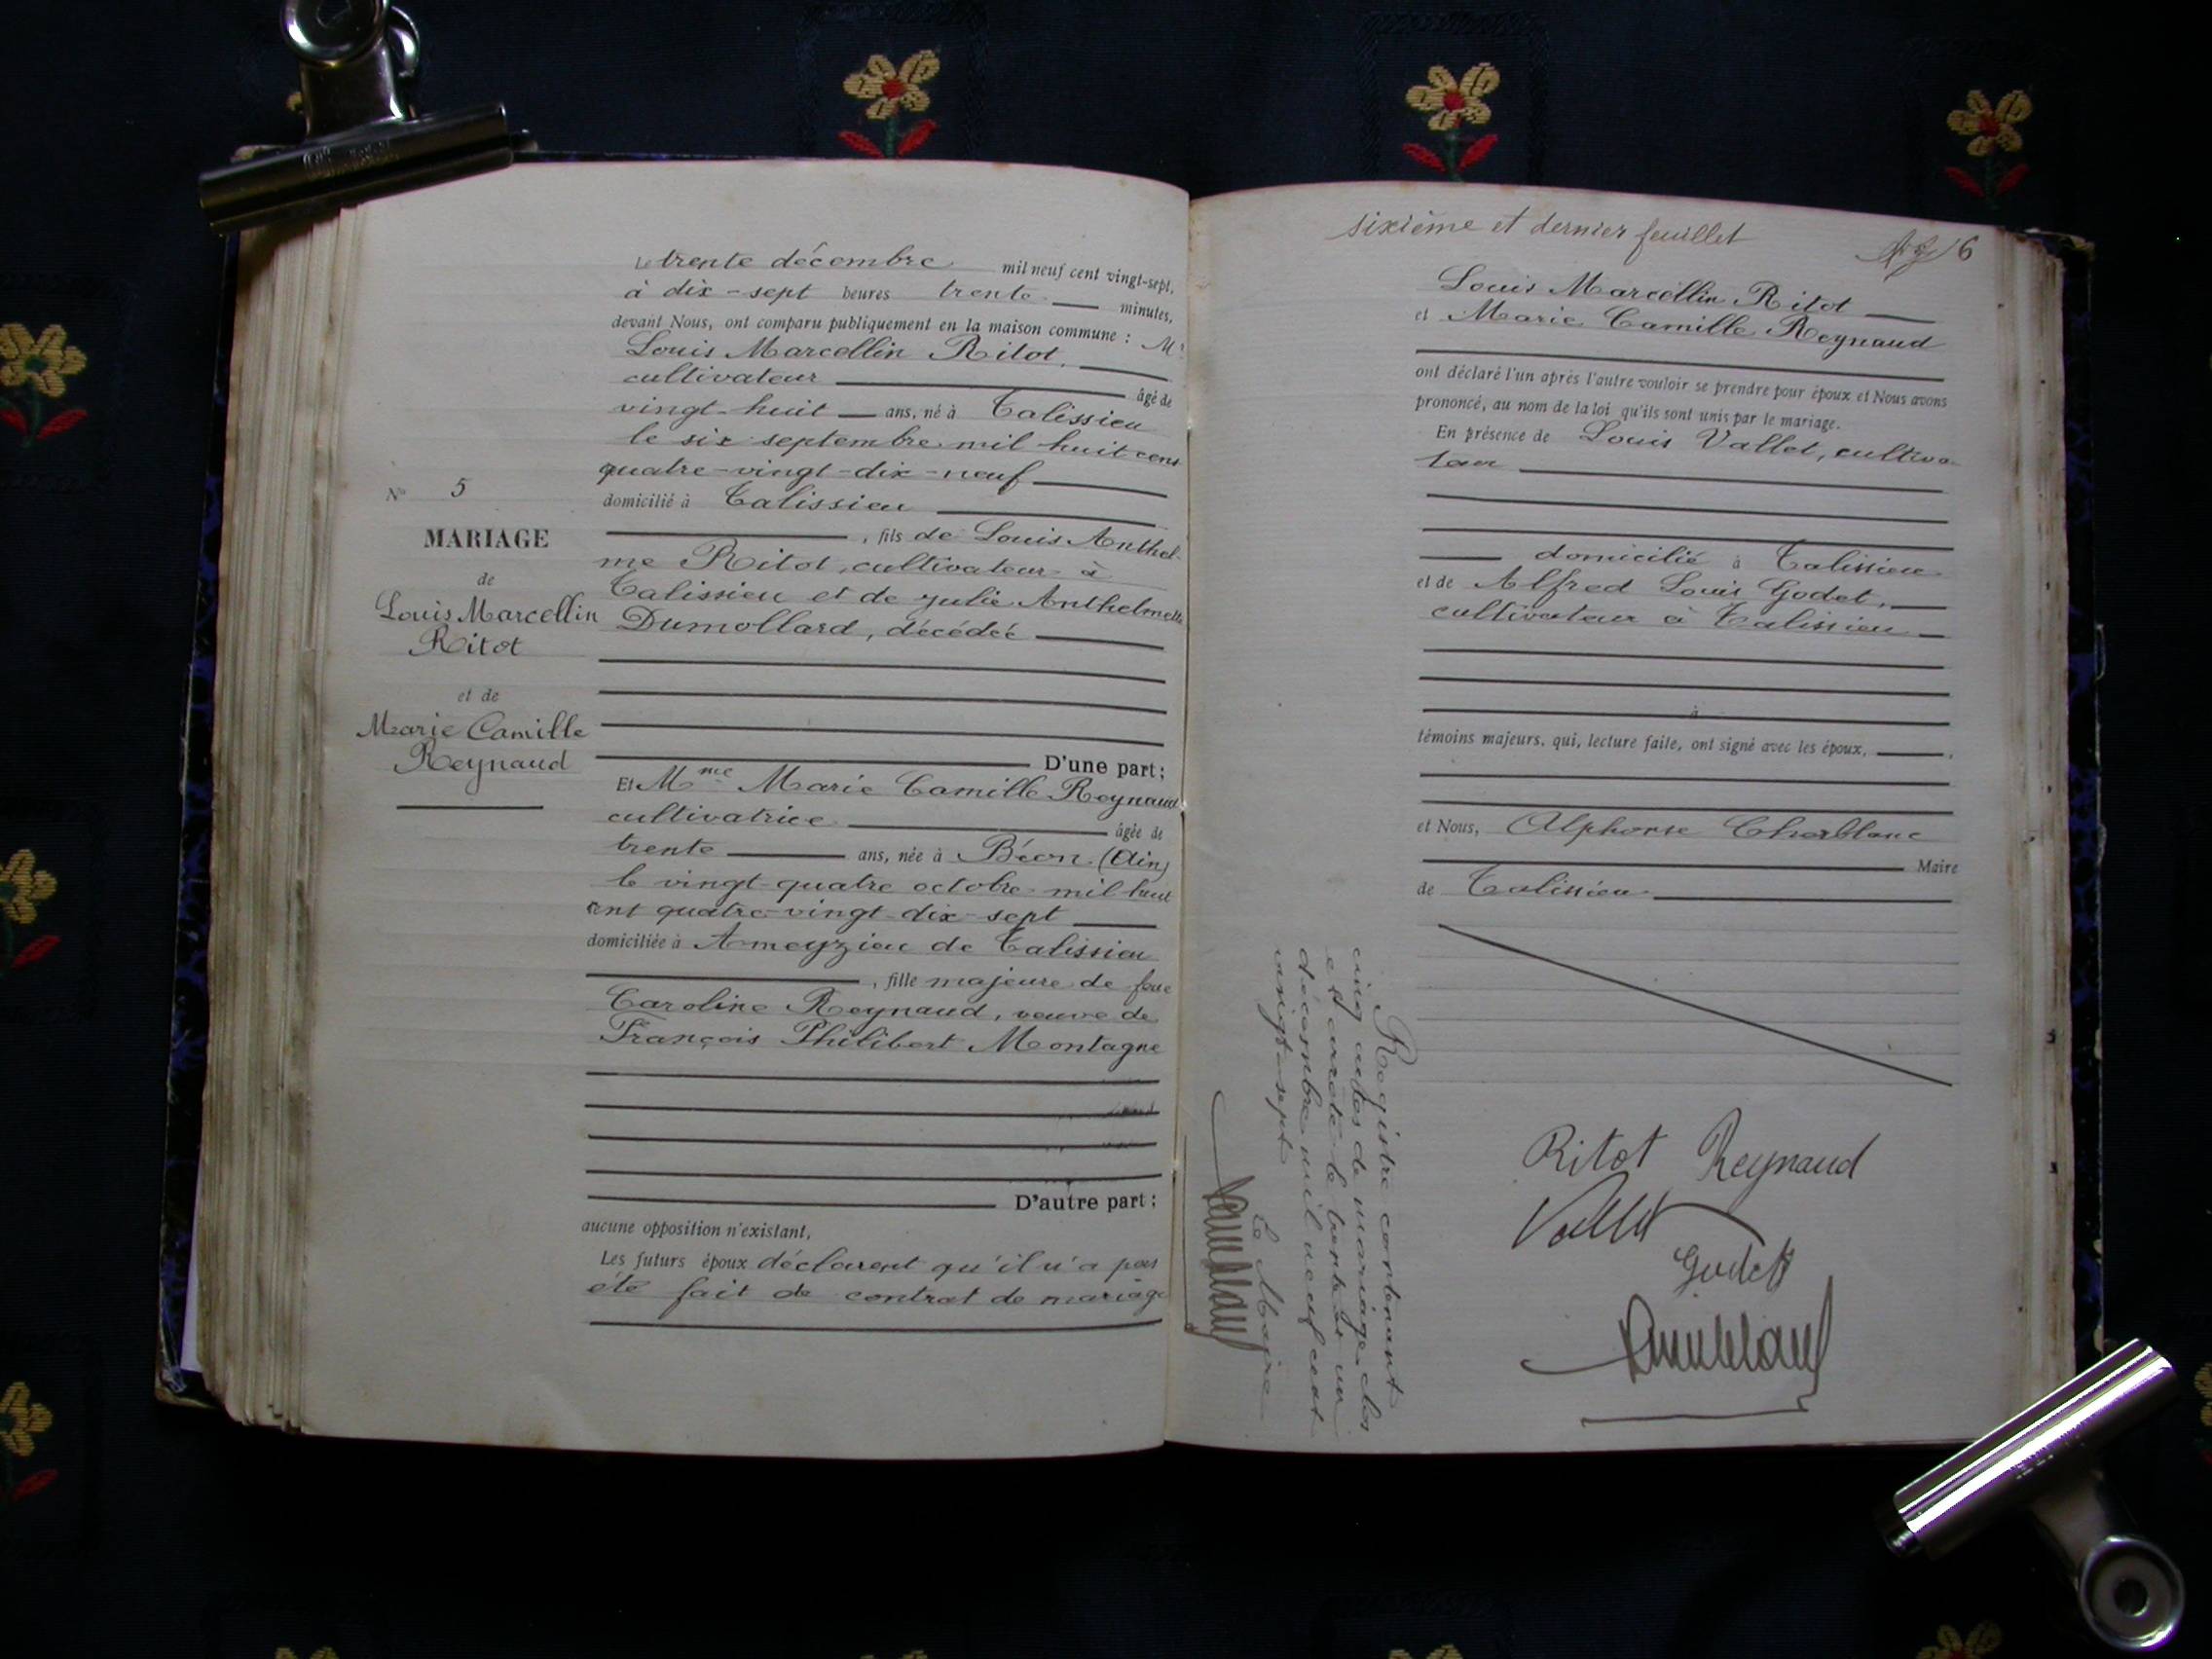 Le trente décembre mil neuf cent vingt-sept,
à dix-sept heures trente minutes,
devant Nous, ont comparu publiquement en la maison commune : Mr
Louis Marcellin Ritot,
cultivateur âgé de
vingt-huit ans, né à Talissieu
le six septembre mil huit cent
quatre-vingt-dix-neuf
domicilié à Talissieu
, fils de Louis Anthel-
me Ritot, cultivateur à
Talissieu et de Julie Anthelmette
Dumollard, décédée
D'une part ;
N° 5
MARIAGE
de
Louis Marcellin
Ritot
et de
Marie Camille
Reynaud
Et Mme Marie Camille Reynaud
cultivatrice âgée de
trente ans, née à Béon (Ain)
le vingt-quatre octobre mil huit
cent quatre-vingt-dix-sept
domiciliée à Ameyzieu de Talissieu
, fille majeure de feue
Caroline Reynaud, veuve de
François Philibert Montagne
D'autre part ;
aucune opposition n'existant,
Les futurs époux déclarent qu'il n'a pas
été fait de contrat de mariage
sixième et dernier feuillet
6
Louis Marcellin Ritot
et Marie Camille Reynaud
ont déclaré l'un après l'autre vouloir se prendre pour époux et Nous avons
prononcé, au nom de la loi qu'ils sont unis par le mariage.
En présence de Louis Vallet, cultiva-
teur
domicilié à Talissieu
et de Alfred Louis Godet,
cultivateur à Talissieu
à
témoins majeurs, qui, lecture faite, ont signé avec les époux,
et Nous, Alphonse Cherblanc
Maire
de Talissieu
Ritot Reynaud
Vallet
Godet
Registre contenant
cinq actes de mariage clos
et arrêté le trente et un
décembre mil neuf cent
vingt-sept
Le Maire